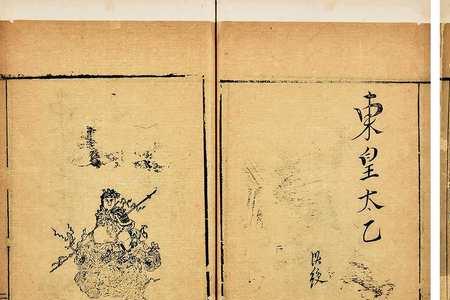 東皇太乙